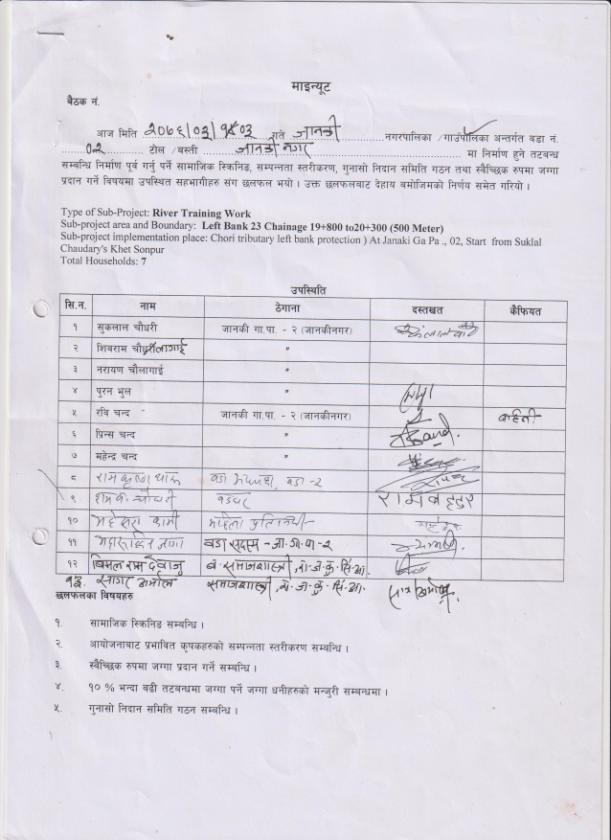 माइन्यूट
बैठक नं.
आज मिति २०७६/०३/१४०३ गते जानकी नगरपालिका /गाउँपालिका अन्तर्गत वडा नं.
०२ टोल /बस्ती जानकी नगर मा निर्माण हुने तटबन्ध
सम्बन्धि निर्माण पूर्व गर्नु पर्ने सामाजिक स्किनिङ, सम्पन्नता स्तरीकरण, गुनासो निदान समिति गठन तथा स्वैच्छिक रुपमा जग्गा
प्रदान गर्ने विषयमा उपस्थित सहभागीहरु संग छलफल भयो । उक्त छलफलबाट देहाय बमोजिमको निर्णय समेत गरियो ।
Type of Sub-Project: River Training Work
Sub-project area and Boundary: Left Bank 23 Chainage 19+800 to20+300 (500 Meter)
Sub-project implementation place: Chori tributary left bank protection ) At Janaki Ga Pa ., 02, Start from Suklal
Chaudary's Khet Sonpur
Total Households: 7
उपस्थिति
सि.न. नाम ठेगाना दस्तखत कैफियत
१ सुकलाल चौधरी जानकी गा.पा. - २ (जानकीनगर)
२ शिवराम चौलागाई "
३ नरायण चौलागाई "
४ पुरन भुल "
५ रवि चन्द जानकी गा.पा. - २ (जानकीनगर)
६ प्रिन्स चन्द "
७ महेन्द्र चन्द "
८ रामकृष्ण थारु वडा २
९ चौधरी रामबहादुर
१० महेसरा कामी महिला प्रतिनिधी
११ वडा सदस्य - जा.गा.पा-२
१२ विमल राम देवाजु व. समाजशास्त्री, रा.ज.कु.सिं.आ.
१३. सागर समाजशास्त्री, रा.ज.कु.सिं.आ.
छलफलका विषयहरु
१. सामाजिक स्किनिङ सम्बन्धि ।
२. आयोजनाबाट प्रभावित कृषकहरुको सम्पन्नता स्तरीकरण सम्बन्धि ।
३. स्वैच्छिक रुपमा जग्गा प्रदान गर्ने सम्बन्धि ।
४. १० % भन्दा बढी तटबन्धमा जग्गा पर्ने जग्गा धनीहरुको मन्जुरी सम्बन्धमा ।
५. गुनासो निदान समिति गठन सम्बन्धि ।